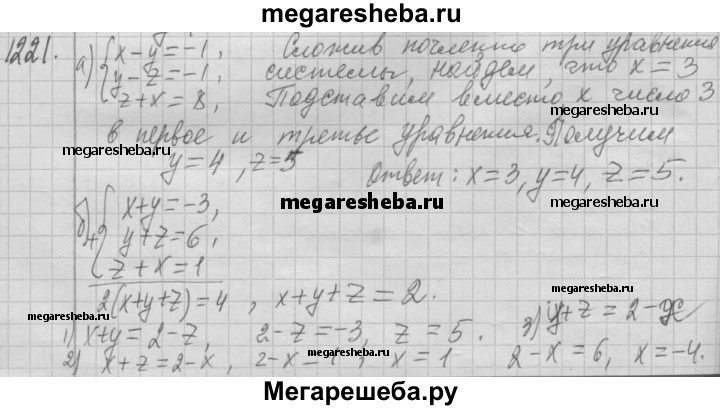 megaresheba.ru
1221. а) { x - y = -1, Сложив почленно три уравнения
y - z = -1, системы, найдем, что x = 3
z + x = 8, Подставим вместо x число 3
в первое и третье уравнения. Получим
megaresheba.ru megaresheba.ru
y = 4, z = 5 Ответ: x = 3, y = 4, z = 5.
megaresheba.ru
б) + { x + y = -3,
y + z = 6,
z + x = 1
megaresheba.ru
2(x + y + z) = 4, x + y + z = 2.
megaresheba.ru
1) x + y = 2 - z, 2 - z = -3, z = 5. 3) y + z = 2 - x
2) x + z = 2 - x, 2 - x = 1, x = 1 2 - x = 6, x = -4.
Мегарешеба.ру